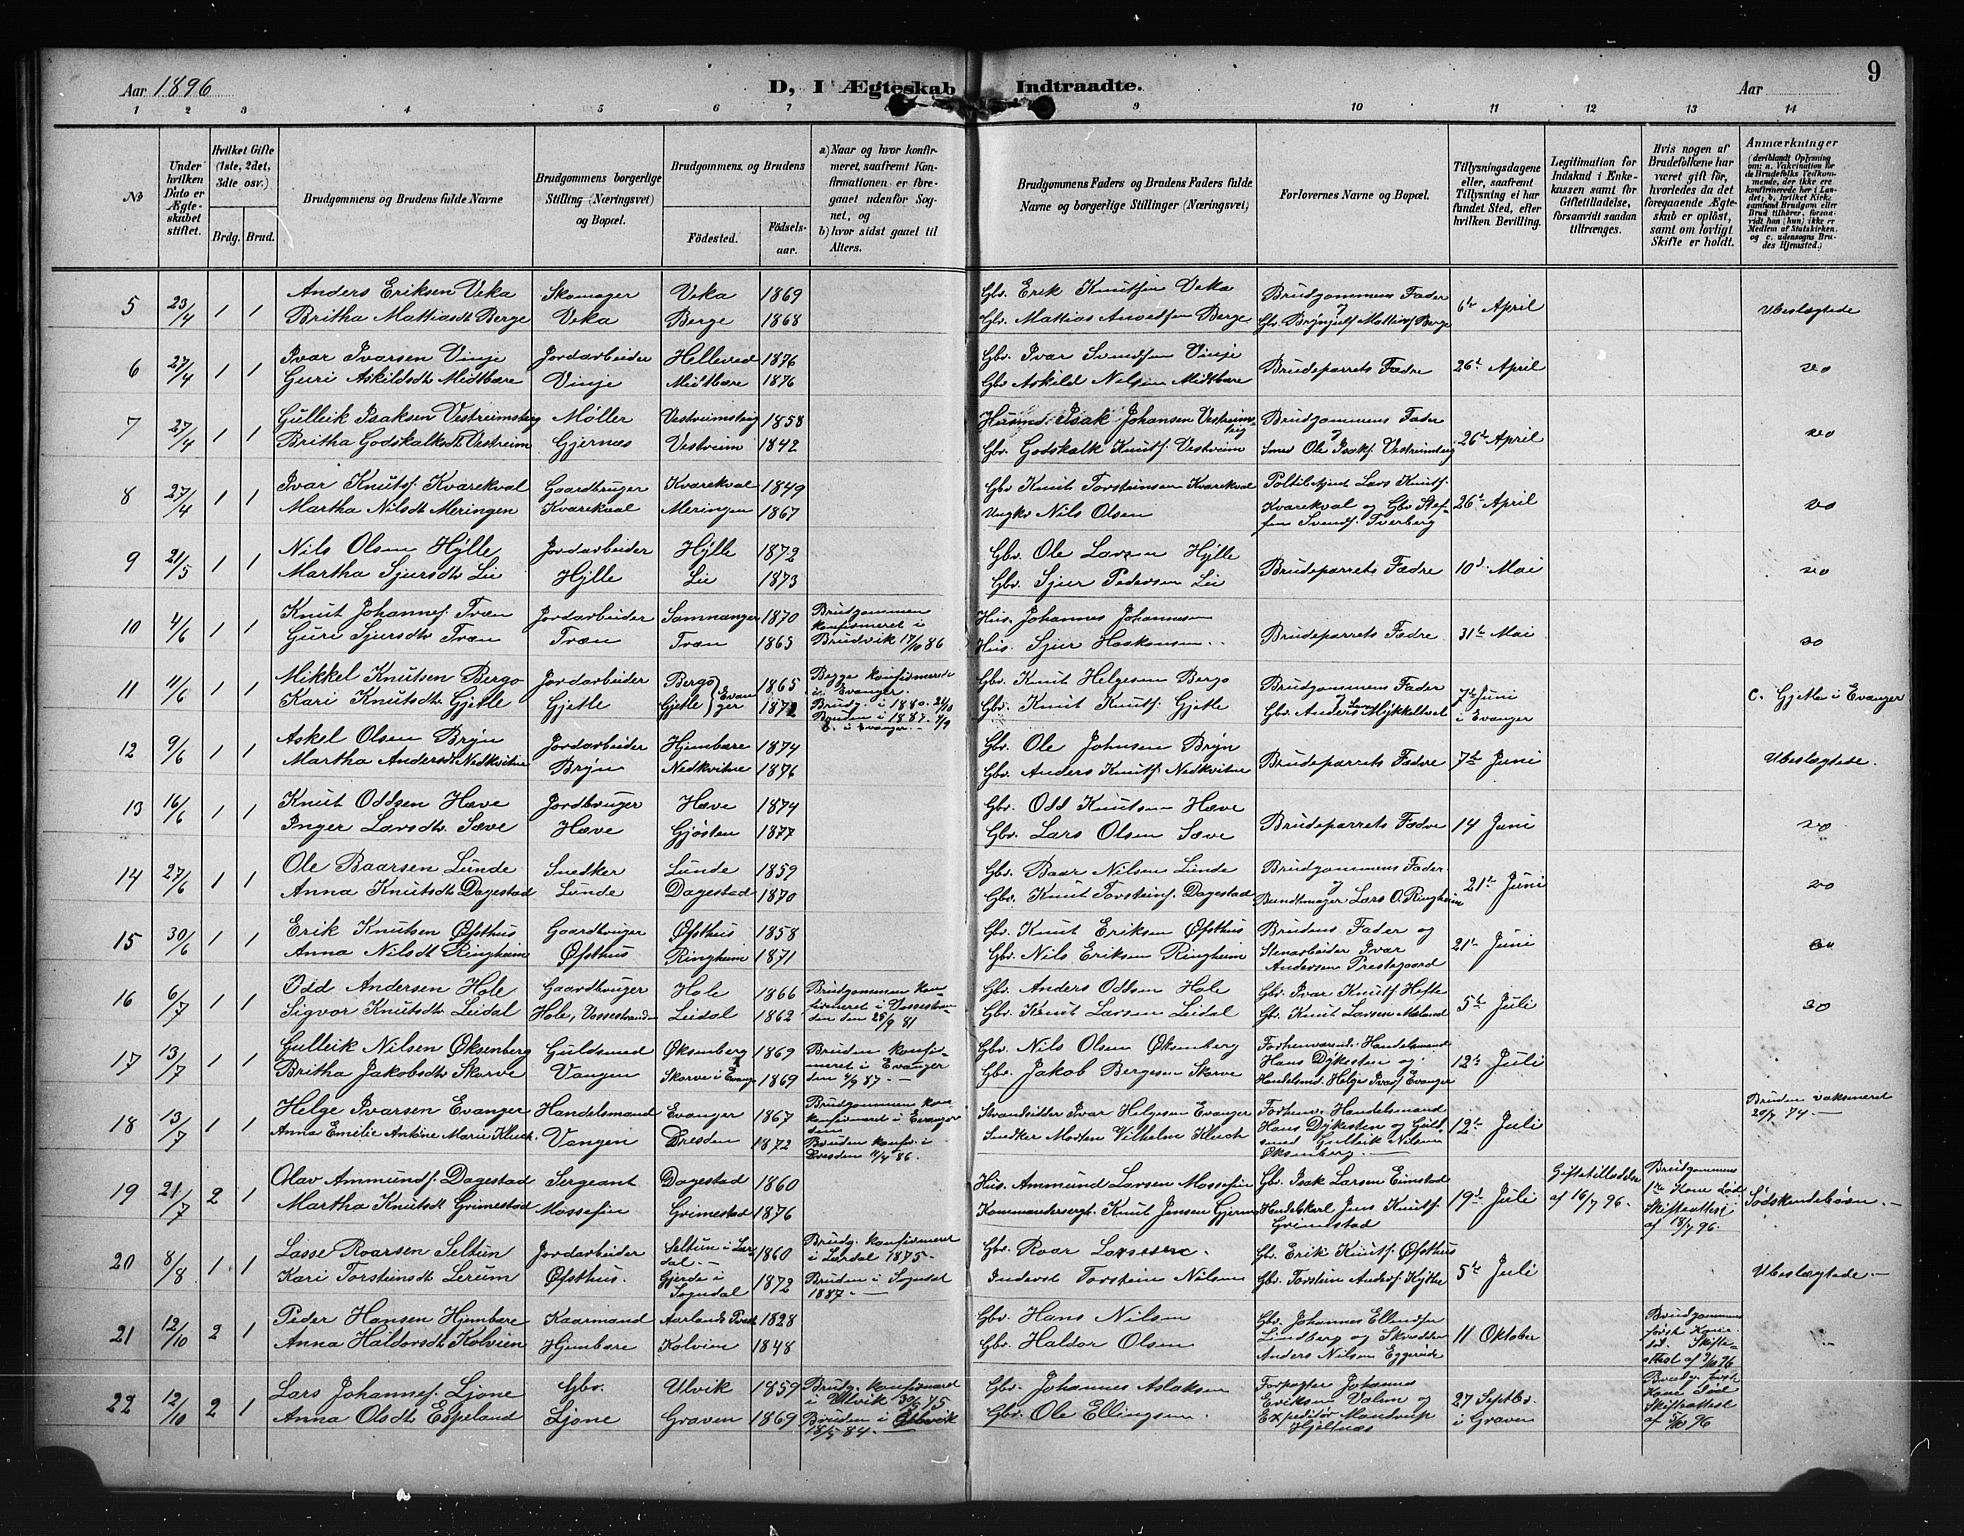 Aar 1896
D, I Ægteskab Indtraadte.
Aar
9
1 2 3 4 5 6 7 9 10 11 12 13 14
No
Under hvilken Dato er Ægteskabet stiftet.
Hvilket Gifte (1ste, 2det, 3die osv.)
Brdg. Brud.
Brudgommens og Brudens fulde Navne
Brudgommens borgerlige Stilling (Næringsvei) og Bopæl.
Brudgommens, og Brudens
Födested.
Födsels-aar.
a) Naar og hvor konfirmeret, saafremt Konfirmationen er foregaaet udenfor Sognet, og
b) hvor sidst gaaet til Alters.
Brudgommens Faders og Brudens Faders fulde Navne og borgerlige Stillinger (Næringsvei)
Forlovernes Navne og Bopæl.
Tillysningsdagene eller, saafremt Tillysning ei har fundet Sted, efter hvilken Bevilling.
Legitimation for Indskud i Enkekassen samt for Giftetilladelse, forsaavidt saadan tiltrænges.
Hvis nogen af Brudefolkene har været gift før, hvorledes da det foregaaende Ægteskab er oplöst, samt om lovligt Skifte er holdt.
Anmærkninger
5 23/4 1 1 Anders Eriksen Veka Skomager Veka 1869 Gbr. Erik Knutsen Veka Brudgommens Fader 6te April Ubeslægtede
Britha Mattiasdt Berge Veka Berge 1868 Gbr. Mattias Berge og Gbr. Brynjulf Mattiasf Berge
6 27/4 1 1 Ivar Ivarsen Vinje Jordarbeider Hellered 1876 Gbr. Ivar Svendsen Vinje Brudeparrets Fædre 26t April do
Guri Askildsdt Midtbære Vinje Midtbære 1876 Gbr Askild Nilsen Midtbære
7 27/4 1 1 Gulleik Isaksen Vestreimsteig Møller Vestreimsteig 1858 Isak Johansen Vestreimsteig Brudgommens Fader 26t April do
Britha Godskalksdt Vestreim Gjernæs Vestreim 1842 Gbr. Godskalk Knutf. Vestreim og Smed Ole Isakf Vestreimsteig
8 27/4 1 1 Ivar Knutsf. Kvarekval Gaardbruger Kvarekval 1849 Gbr Knut Torsteinsen Kvarekval Lars Knutf. 26t April do
Martha Nilsdt Meringen Kvarekval Meringen 1867 Ungkr Nils Olsen Kvarekval og Gbr Steffen Svendf. Tverberg
9 21/5 1 1 Nils Olsen Hylle Jordarbeider Hylle 1872 Gbr. Ole Larsen Hylle Brudeparrets Fædre 10d Mai do
Martha Sjursdtr Lie Hylle Lie 1873 Gbr. Sjur Pedersen Lie
10 4/6 1 1 Knut Johannesf. Træn Jordarbeider Samnanger 1870 Brudgommen konfirmeret i Brudvik 17/10 86 Hus. Johannes Johannesen Brudeparrets Fædre 31te Mai do
Guri Sjursdtr Træn Træn Træn 1863 Hus. Sjur Haakonsen
11 11/6 1 1 Mikkel Knutsen Bergo Jordarbeider Bergo Evanger 1865 Begge konfirmerede i Evanger. Gbr. Knut Helgesen Bergo Brudgommens Fader 7de Juni i Evanger C. Gjetle i Evanger
Kari Knutsdtr Gjetle Gjetle Gjetle 1872 Brudg. i 1880. Bruden i 1887. Gbr. Knut Knutf. Gjetle
12 9/6 1 1 Askel Olsen Bryn Jordarbeider Hjembære 1874 Gbr. Ole Johnsen Bryn Brudeparrets Fædre 7de Juni Ubeslægtede.
Martha Andersdt Nedkvitne Bryn Nedkvitne 1876 Gbr. Anders Knutf. Nedkvitne
13 16/6 1 1 Knut Oddsen Hæve Jordbruger Hæve 1874 Gbr. Odd Knutsen Hæve Brudeparrets Fædre 14 Juni do
Inger Larsdtr Sæve Hæve Gjøsten 1877 Gbr. Lars Olsen Sæve
14 27/6 1 1 Ole Baarsen Lunde Snedker Lunde 1859 Gbr. Baar Nilsen Lunde Brudgommens Fader 21te Juni do
Anna Knutsdt Dagestad Lunde Dagestad 1870 Gbr. Knut Torsteinf. Dagestad og Bundtmager Lars O. Ringheim
15 30/6 1 1 Erik Knutsen Øfsthus Gaardbruger Øfsthus 1858 Gbr. Knut Eriksen Øfsthus Brudens Fader og 21te Juni do
Anna Nilsdt Ringheim Øfsthus Ringheim 1871 Gbr. Nils Eriksen Ringheim Stenarbeider Ivar Andersen Prestegaard
16 6/7 1 1 Odd Andersen Hole Gaardbruger Hole 1866 Brudgommen konfirmeret i Vossestranden den 25/9 81 Gbr. Anders Oddsen Hole Gbr. Ivar Knutf Hefte 5te Juli do
Sigvor Knutsdtr Leidal Hole, Vossestranden Leidal 1862 Gbr. Knut Larsen Leidal Gbr. Knut Larsen Møland
17 13/7 1 1 Gulleik Nilsen Øksenberg Guldsmed Øksenberg 1869 Bruden konfirmeret i Evanger den 4/9 87. Gbr. Nils Olsen Øksenberg Forhenværend. Handelsmand 12te Juli
Britha Jakobsdtr Skorve Vangen Skorve i Evang. 1869 Gbr. Jakob Bergesen Skorve Hans Dykesten og Handelsmd. Helge Ivarf Evanger
18 13/7 1 1 Helge Ivarsen Evanger Handelsmand Evanger 1867 Brudgommen konfirmeret i Evanger Strandsitter Ivar Helgesen Evanger Forhenv. Handelsmand 12te Juli Bruden vaksineret 20/7 74.
Anna Emilie Antonie Marie Kluch. Vangen Dresden 1872 Bruden konfir. i Dresden 11/4 86. Snedker Morten Vilhelm Kluch Hans Dykesten og Guldsmed Gulleik Nilsen Øksenberg.
19 21/7 2 1 Olav Ammundf. Dagestad Sergeant Dagestad 1860 Hus. Ammund Larsen Mossefin Gbr. Isak Larsen Eimstad 19d Juli Giftetilladelse af 16/7 96. Brudgommens 1te Kone død. Skifteattest af 18/7 96. Sødskendebørn.
Martha Knutsdt Grimestad Mossefin Grimestad 1876 Kommandersergt. Knut Jensen Gjerme Handelskarl Jens Knutf. Grimestad
20 8/8 1 1 Lasse Roarsen Seltun Jordarbeider Seltun i Lærdal. 1860 Brudg. konfirmeret i Lærdal 1875. Gbr. Roar Larsen. Gbr. Erik Knutf. Øfsthus 5te Juli Ubeslægtede.
Kari Torsteinsdt Lerum Øfsthus. Gjerde i Sogndal 1872 Bruden i Sogndal 1887. Inderst Torstein Nilsen Gbr. Torstein Andersf. Kythe
21 12/10 2 1 Peder Hansen Hjembære Kaarmand 1828 Gbr. Hans Nilsen Gbr. Johannes Ellendsen 11 Oktober Brudgommens først Kone død. Skifteattest af 9/10 96
Anna Haldorsdt Kolvien Hjembære Kolvien 1848 Gbr. Haldor Olsen Lindberg og Skrædder Anders Nilsen Eggereide
22 12/10 2 1 Lars Johannesf. Ljone Gbr. Ulvik 1859 Brudg. konfirmeret i Ulvik 30/5 75 Gbr. Johannes Aslaksen Johannes 27 Septbr. i Graven Brudg. først Kone død Skifteattest af 96
Anna Olsdt Espeland Ljone Graven 1869 Bruden i 18/5 84. Gbr. Ole Ellingsen. Eriksen Valen og Expeditør Mandrup Hjeltnæs